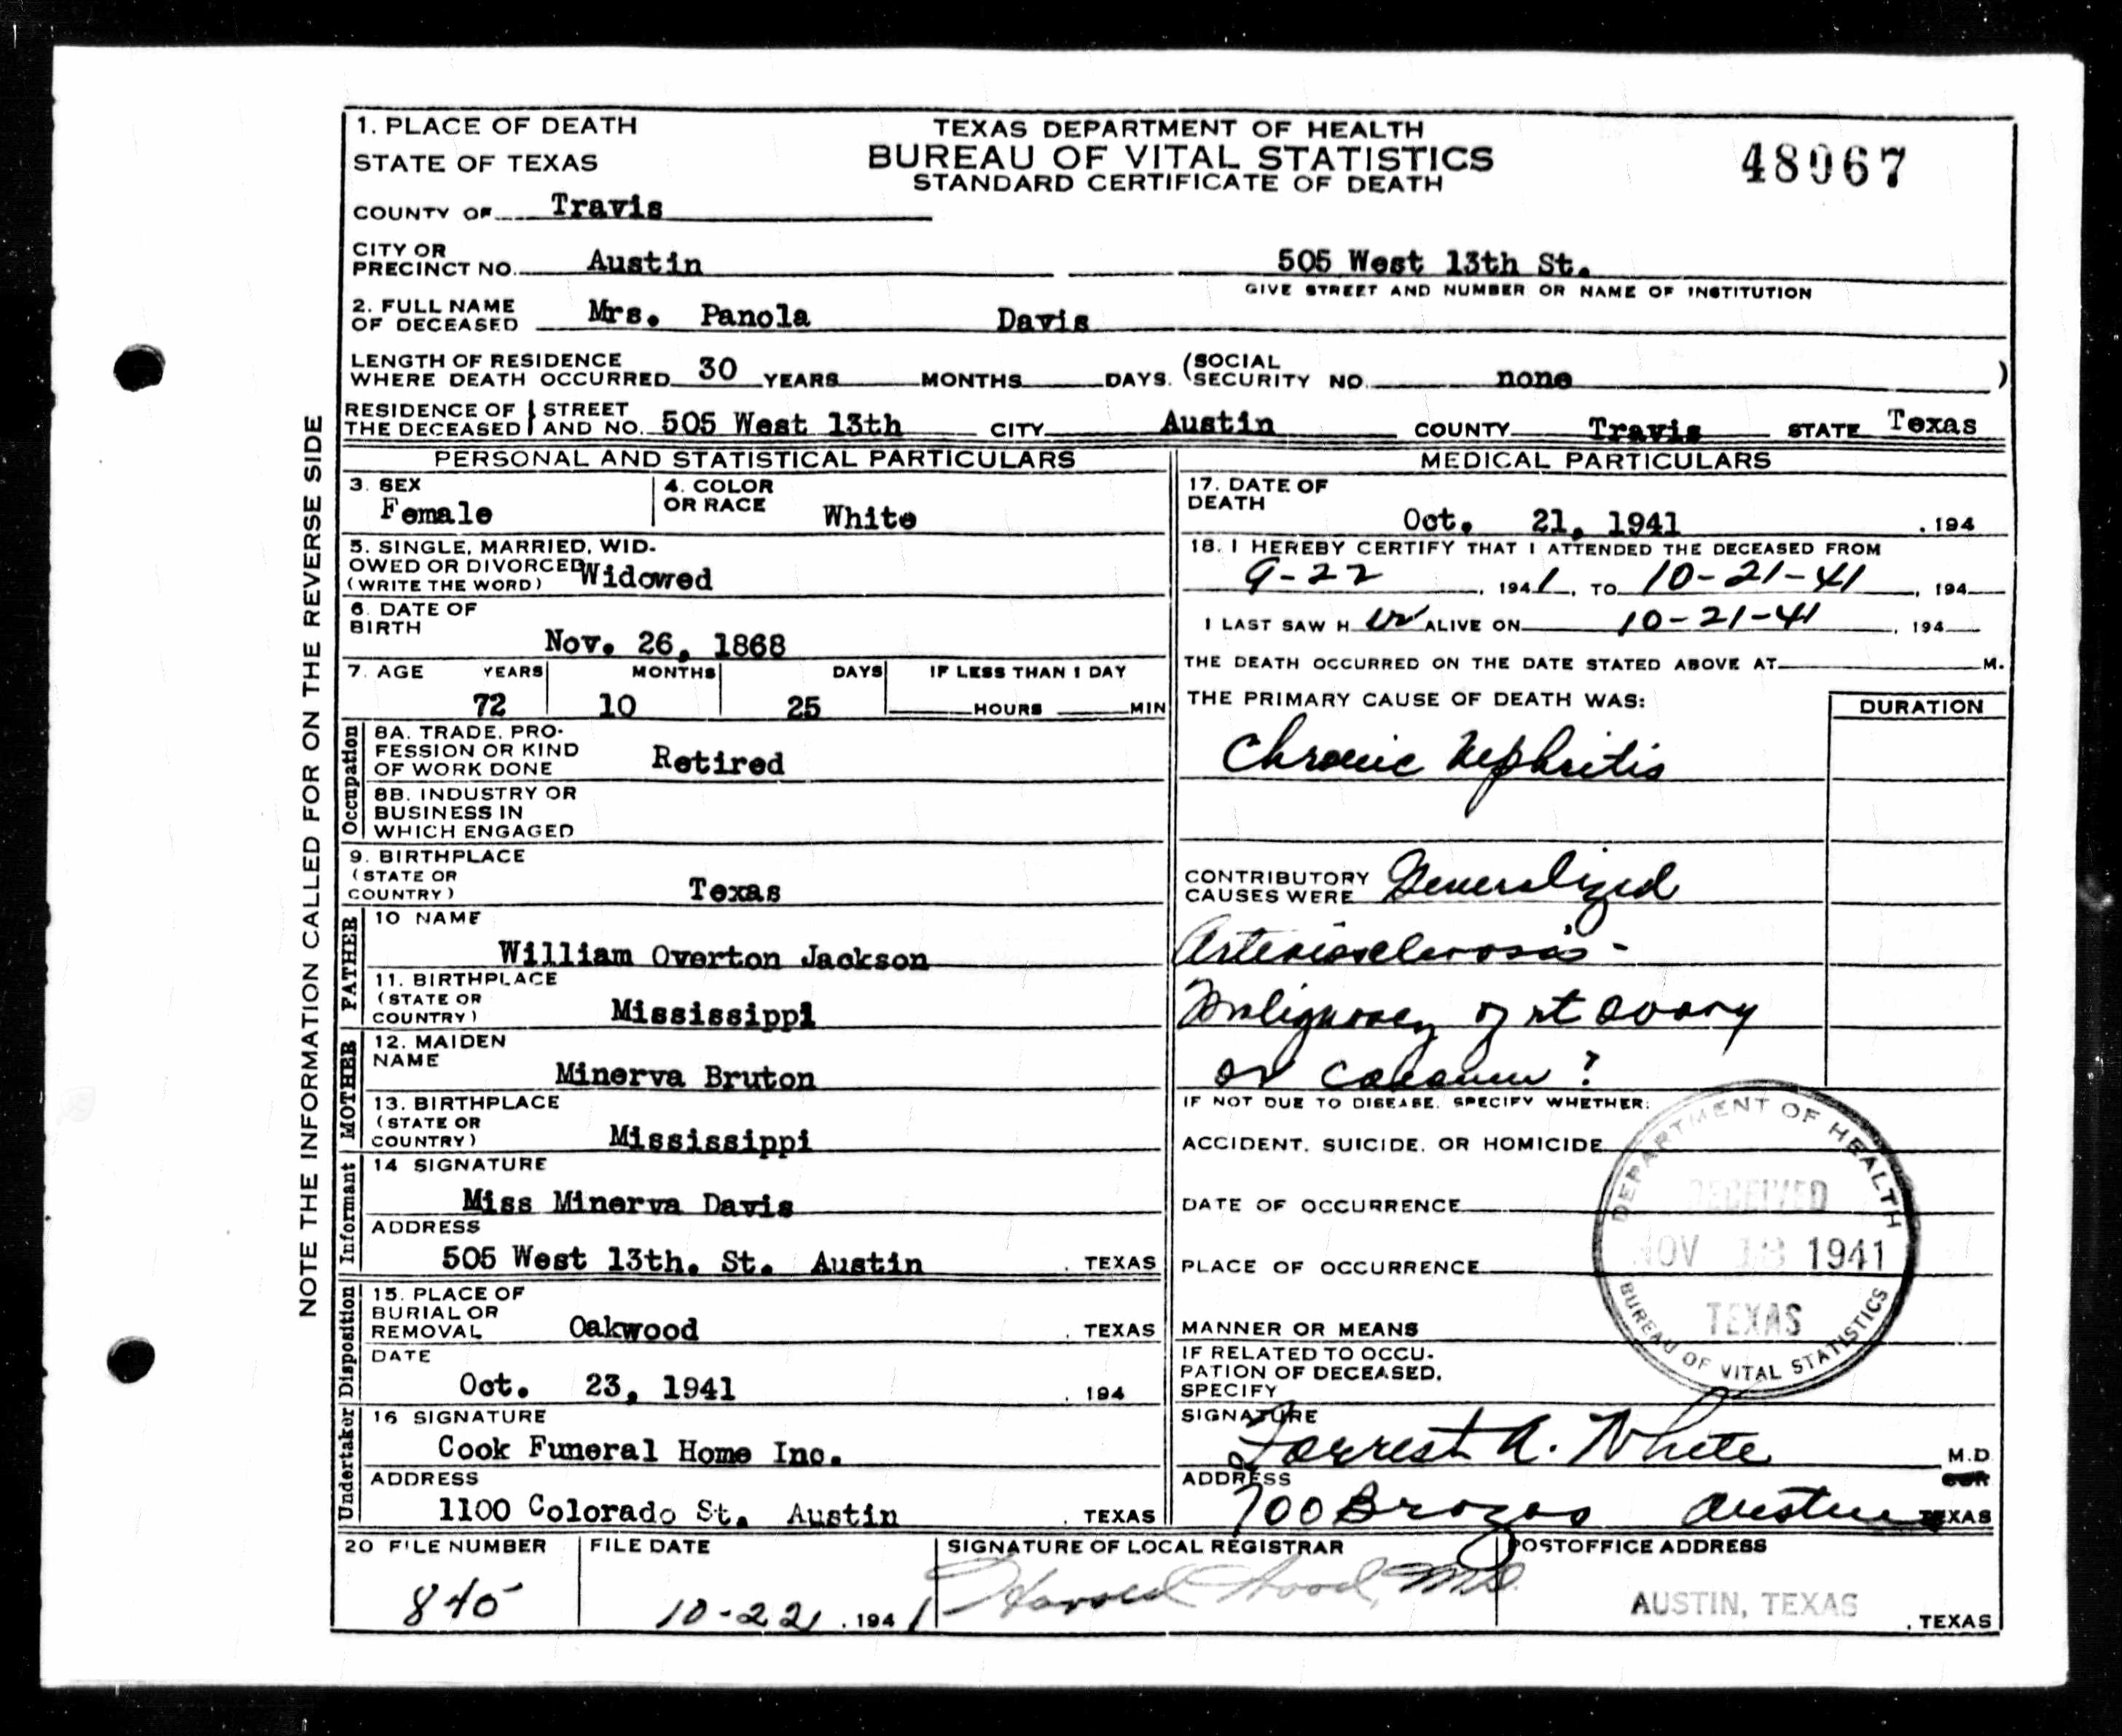 1. PLACE OF DEATH
STATE OF TEXAS
COUNTY OF Travis
TEXAS DEPARTMENT OF HEALTH
BUREAU OF VITAL STATISTICS
STANDARD CERTIFICATE OF DEATH
48067
CITY OR
PRECINCT NO. Austin 505 West 13th St.
GIVE STREET AND NUMBER OR NAME OF INSTITUTION
2. FULL NAME
OF DECEASED Mrs. Panola Davis
LENGTH OF RESIDENCE
WHERE DEATH OCCURRED 30 YEARS MONTHS DAYS. (SOCIAL
SECURITY NO. none )
RESIDENCE OF THE DECEASED STREET AND NO. 505 West 13th CITY Austin COUNTY Travis STATE Texas
NOTE THE INFORMATION CALLED FOR ON THE REVERSE SIDE
PERSONAL AND STATISTICAL PARTICULARS
3. SEX
Female
4. COLOR
OR RACE White
5. SINGLE, MARRIED, WID-
OWED OR DIVORCED
(WRITE THE WORD) Widowed
6. DATE OF
BIRTH
Nov. 26, 1868
7. AGE YEARS MONTHS DAYS IF LESS THAN 1 DAY
72 10 25 HOURS MIN
Occupation
8A. TRADE, PRO-
FESSION OR KIND
OF WORK DONE Retired
8B. INDUSTRY OR
BUSINESS IN
WHICH ENGAGED
9. BIRTHPLACE
(STATE OR
COUNTRY) Texas
FATHER
10 NAME
William Overton Jackson
11. BIRTHPLACE
(STATE OR
COUNTRY) Mississippi
MOTHER
12. MAIDEN
NAME
Minerva Bruton
13. BIRTHPLACE
(STATE OR
COUNTRY) Mississippi
Informant
14 SIGNATURE
Miss Minerva Davis
ADDRESS
505 West 13th. St. Austin , TEXAS
Disposition
15. PLACE OF
BURIAL OR
REMOVAL Oakwood , TEXAS
DATE
Oct. 23, 1941 , 194
Undertaker
16 SIGNATURE
Cook Funeral Home Inc.
ADDRESS
1100 Colorado St. Austin , TEXAS
MEDICAL PARTICULARS
17. DATE OF
DEATH
Oct. 21, 1941 , 194
18. I HEREBY CERTIFY THAT I ATTENDED THE DECEASED FROM
9-22 , 1941, TO 10-21-41 , 194
I LAST SAW H er ALIVE ON 10-21-41 , 194
THE DEATH OCCURRED ON THE DATE STATED ABOVE AT M.
THE PRIMARY CAUSE OF DEATH WAS: DURATION
Chronic Nephritis
CONTRIBUTORY
CAUSES WERE Generalized
Arteriosclerosis -
Malignancy of rt ovary
or caecum ?
IF NOT DUE TO DISEASE, SPECIFY WHETHER:
ACCIDENT, SUICIDE, OR HOMICIDE
DATE OF OCCURRENCE
PLACE OF OCCURRENCE
MANNER OR MEANS
IF RELATED TO OCCU-
PATION OF DECEASED,
SPECIFY
DEPARTMENT OF HEALTH
RECEIVED
NOV 1941
TEXAS
BUREAU OF VITAL STATISTICS
SIGNATURE
Forrest A. White M.D
ADDRESS
700 Brazos Austin TEXAS
20 FILE NUMBER
845
FILE DATE
10-22, 1941
SIGNATURE OF LOCAL REGISTRAR
Harold Wood, M.D.
POSTOFFICE ADDRESS
AUSTIN, TEXAS
, TEXAS